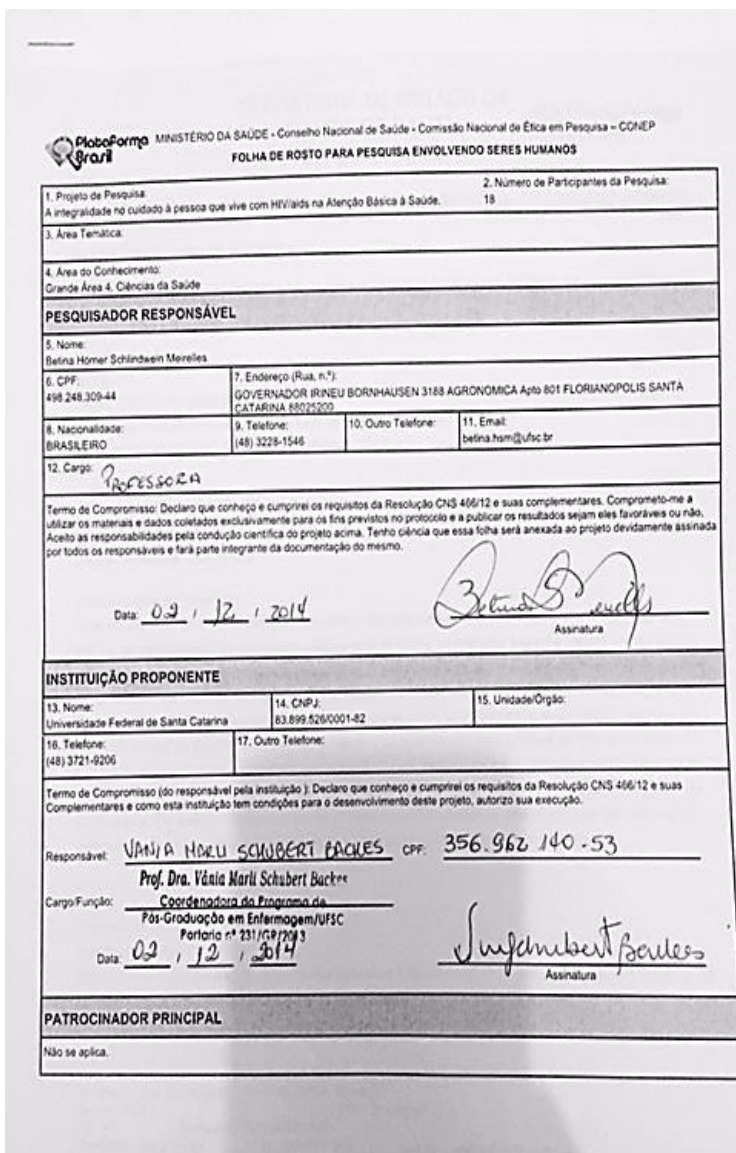 Plataforma Brasil
MINISTÉRIO DA SAÚDE - Conselho Nacional de Saúde - Comissão Nacional de Ética em Pesquisa – CONEP
FOLHA DE ROSTO PARA PESQUISA ENVOLVENDO SERES HUMANOS
1. Projeto de Pesquisa:
A integralidade no cuidado à pessoa que vive com HIV/aids na Atenção Básica à Saúde.
2. Número de Participantes da Pesquisa:
18
3. Área Temática:
4. Área do Conhecimento:
Grande Área 4. Ciências da Saúde
PESQUISADOR RESPONSÁVEL
5. Nome:
Betina Horner Schlindwein Meirelles
6. CPF:
498.248.309-44
7. Endereço (Rua, n.º):
GOVERNADOR IRINEU BORNHAUSEN 3188 AGRONOMICA Apto 801 FLORIANOPOLIS SANTA
CATARINA 88025200
8. Nacionalidade:
BRASILEIRO
9. Telefone:
(48) 3228-1546
10. Outro Telefone:
11. Email:
betina.hsm@ufsc.br
12. Cargo: PROFESSORA
Termo de Compromisso: Declaro que conheço e cumprirei os requisitos da Resolução CNS 466/12 e suas complementares. Comprometo-me a
utilizar os materiais e dados coletados exclusivamente para os fins previstos no protocolo e a publicar os resultados sejam eles favoráveis ou não.
Aceito as responsabilidades pela condução científica do projeto acima. Tenho ciência que essa folha será anexada ao projeto devidamente assinada
por todos os responsáveis e fará parte integrante da documentação do mesmo.
Data: 02 / 12 / 2014
Assinatura
INSTITUIÇÃO PROPONENTE
13. Nome:
Universidade Federal de Santa Catarina
14. CNPJ:
83.899.526/0001-82
15. Unidade/Órgão:
16. Telefone:
(48) 3721-9206
17. Outro Telefone:
Termo de Compromisso (do responsável pela instituição ): Declaro que conheço e cumprirei os requisitos da Resolução CNS 466/12 e suas
Complementares e como esta instituição tem condições para o desenvolvimento deste projeto, autorizo sua execução.
Responsável: VANIA MARLI SCHUBERT BACKES CPF: 356.962.140-53
Prof. Dra. Vânia Marli Schubert Backes
Cargo/Função: Coordenadora do Programa de
Pós-Graduação em Enfermagem/UFSC
Portaria nº 231/GR/2013
Data: 02 / 12 / 2014
Assinatura
PATROCINADOR PRINCIPAL
Não se aplica.